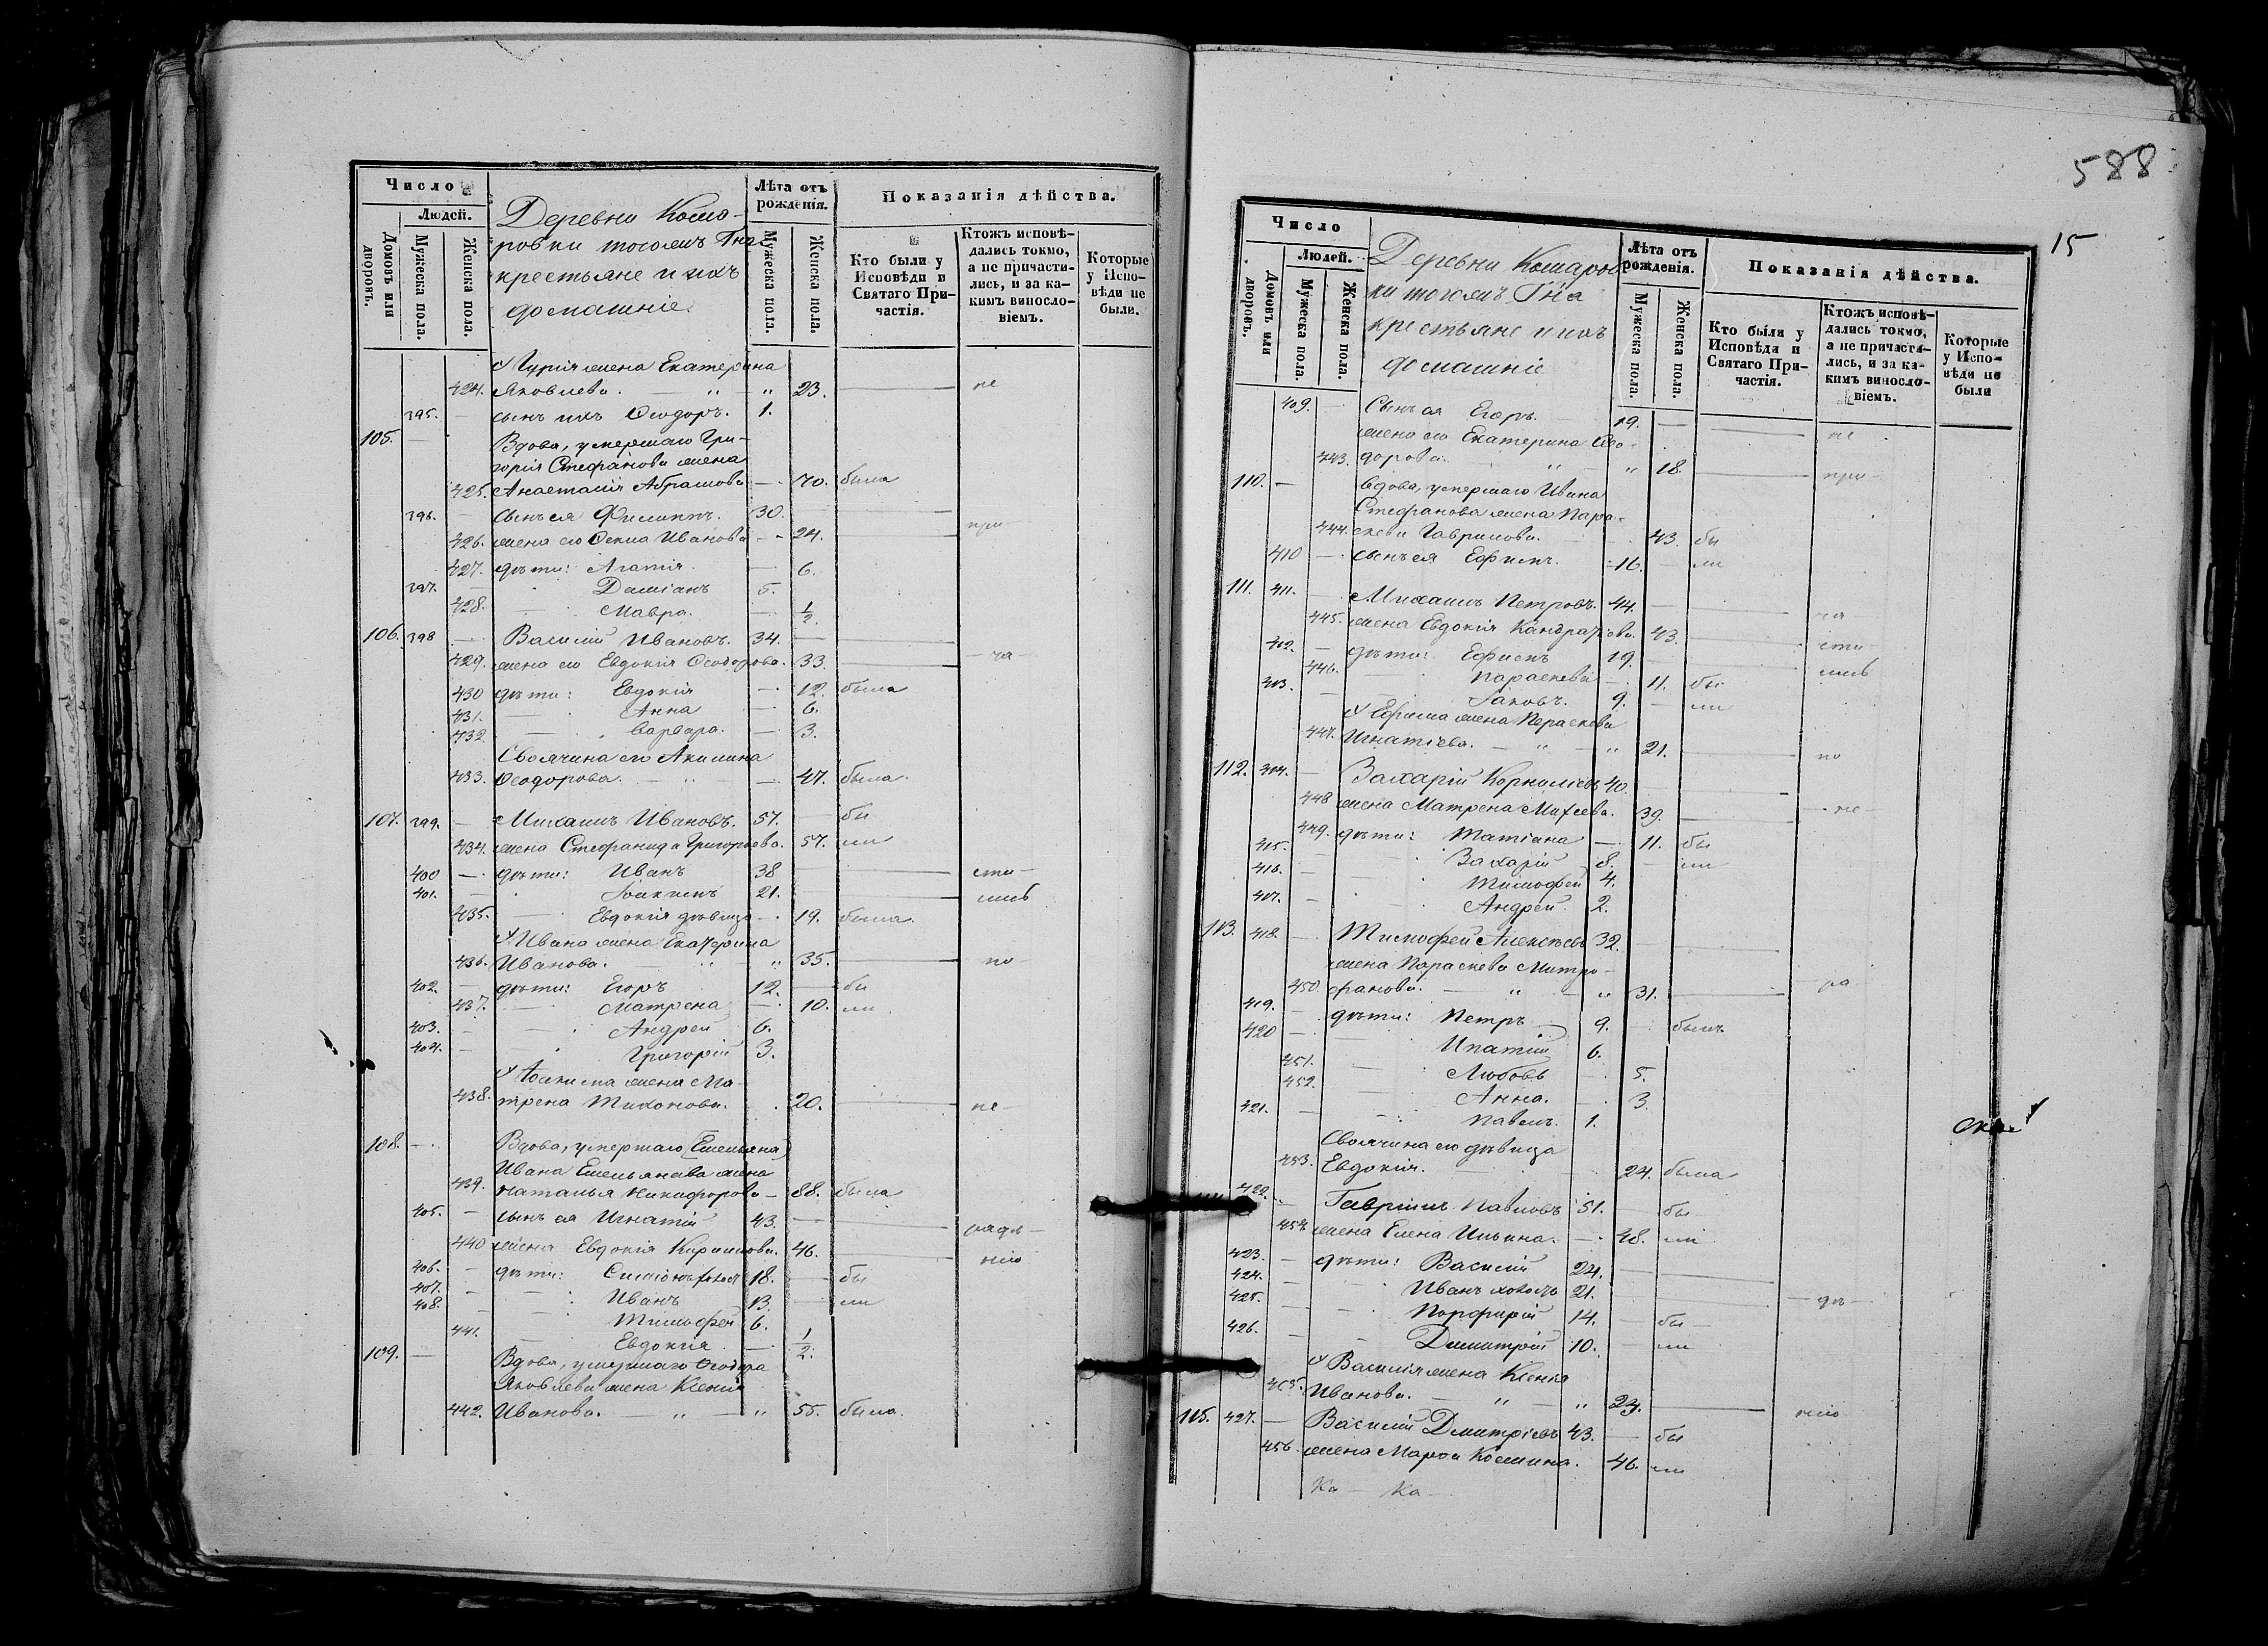 Число
Людей.
Домовъ или дворовъ.
Мужеска пола.
Женска пола.
Деревни Кома-
ровки тогожъ Гна
крестьяне и ихъ
домашніе.
Лѣта отъ рожденія.
Мужеска пола.
Женска пола.
Показанія дѣйства.
Кто были у Исповѣди и Святаго Причастія.
Ктожъ исповѣ-
дались токмо,
а не причасти-
лись, и за ка-
кимъ винословіемъ.
Которые у Исповѣди не были.
У Гурія жена Екатерина
424. Яковлева. — „ — „ 23. — не
395. — сынъ ихъ Ѳеодоръ. 1.
105. — Вдова, умершаго Гри-
горія Стефанова жена
425. Анастасія Абрамова — 70. была
396. — сынъ ея Филиппъ. 30. —
426. жена его Ѳекла Иванова — 24. — при-
427. дѣти: Агафія — 6.
397. Даміанъ 5.
428. — Мавра. — 1/2.
106. 398 — Василій Ивановъ. 34. —
429. жена его Евдокія Ѳеодорова. 33. — ча-
430 дѣти: Евдокія — 12. была
431. — Анна — 6.
432. — Варвара. — 3.
Своячина его Акилина
433. Ѳеодорова. — „ — 47. была.
107. 399. — Михаилъ Ивановъ. 57. — бы
434. жена Стефанида Григорьева. 57. ли
400 — дѣти: Иванъ 38 — сти-
401. — Іоакимъ 21. — лись
435. — Евдокія дѣвица — 19. была.
У Ивана жена Екатерина
436. Иванова. — „ — „ 35. — по-
402. — дѣти: Егоръ 12. — бы
437. — Матрена — 10. ли
403. — Андрей 6.
404. — Григорій 3.
У Іоакима жена Ма-
438. трена Тихонова. — 20. — не-
108. — Вдова, умершаго (Емельяна)
Ивана Емельянова жена
439. Наталья Никифорова — 88. была
405. — сынъ ея Игнатій 43. — радѣ-
440 жена Евдокія Кирилова. 46. — нію
406. — дѣти: Симіонъ холост 18. — бы
407. — Иванъ 13. — ли
408. — Тимофей 6.
441. — Евдокія — 1/2.
109. — Вдова, умершаго Ѳеодора
Яковлева жена Ксенія
442. Иванова. — „ — „ 55. была.
588
15
Число
Людей.
Домовъ или дворовъ.
Мужеска пола.
Женска пола.
Деревни Комаров-
ки тогожъ Гна
крестьяне и ихъ
домашніе
Лѣта отъ рожденія.
Мужеска пола.
Женска пола.
Показанія дѣйства.
Кто были у Исповѣди и Святаго Причастія.
Ктожъ исповѣ-
дались токмо,
а не причасти-
лись, и за ка-
кимъ винословіемъ.
Которые у Исповѣди не были
409. — Сынъ ея Егоръ. 19. — не
жена его Екатерина Ѳео-
443. дорова. „ — „ 18. — при-
110. — Вдова, умершаго Ивана
Стефанова жена Пара-
444. скева Гаврилова. — 43. бы
410 — сынъ ея Ефимъ. 16. — ли
111. 411. — Михаилъ Петровъ. 44. — ча
445. жена Евдокія Кандратіева. 43. — сти
412. — дѣти: Ефимъ 19. — лись
446. — Параскева — 11. бы
413. — Іаковъ. 9. — ли
У Ефима жена Параскева
447. Игнатіева. — „ — „ 21. — по
112. 414. — Захарій Корниліевъ 40. —
448 жена Матрена Михеева. 39. — не-
449. дѣти: Татіана — 11. бы
415. — Захарій 8. — ли
416. — Тимофей 4.
417. — Андрей 2.
113. 418. — Тимофей Алексѣевъ 32. —
жена Параскева Митро-
450. фанова. — „ — „ 31. — ра
419. — дѣти: Петръ 9. — былъ
420 — Ипатій 6.
451. — Любовь — 5.
452. — Анна. — 3.
421. — Павелъ. 1.
Своячина его дѣвица
453. Евдокія. — 24. была
422. — Гавріилъ Павловъ 51. — бы
454. жена Елена Ильина. — 48. ли
423. — дѣти: Василій 24. —
424. — Иванъ холостъ 21. — дѣ-
425. — Порфирій 14. — бы-
426. — Димитрій 10. — ли
У Василія жена Ксенія
455. Иванова. — „ — „ 23. — нію
115. 427. — Василій Дмитріевъ 43. — бы
456. жена Марфа Космина. 46. ли